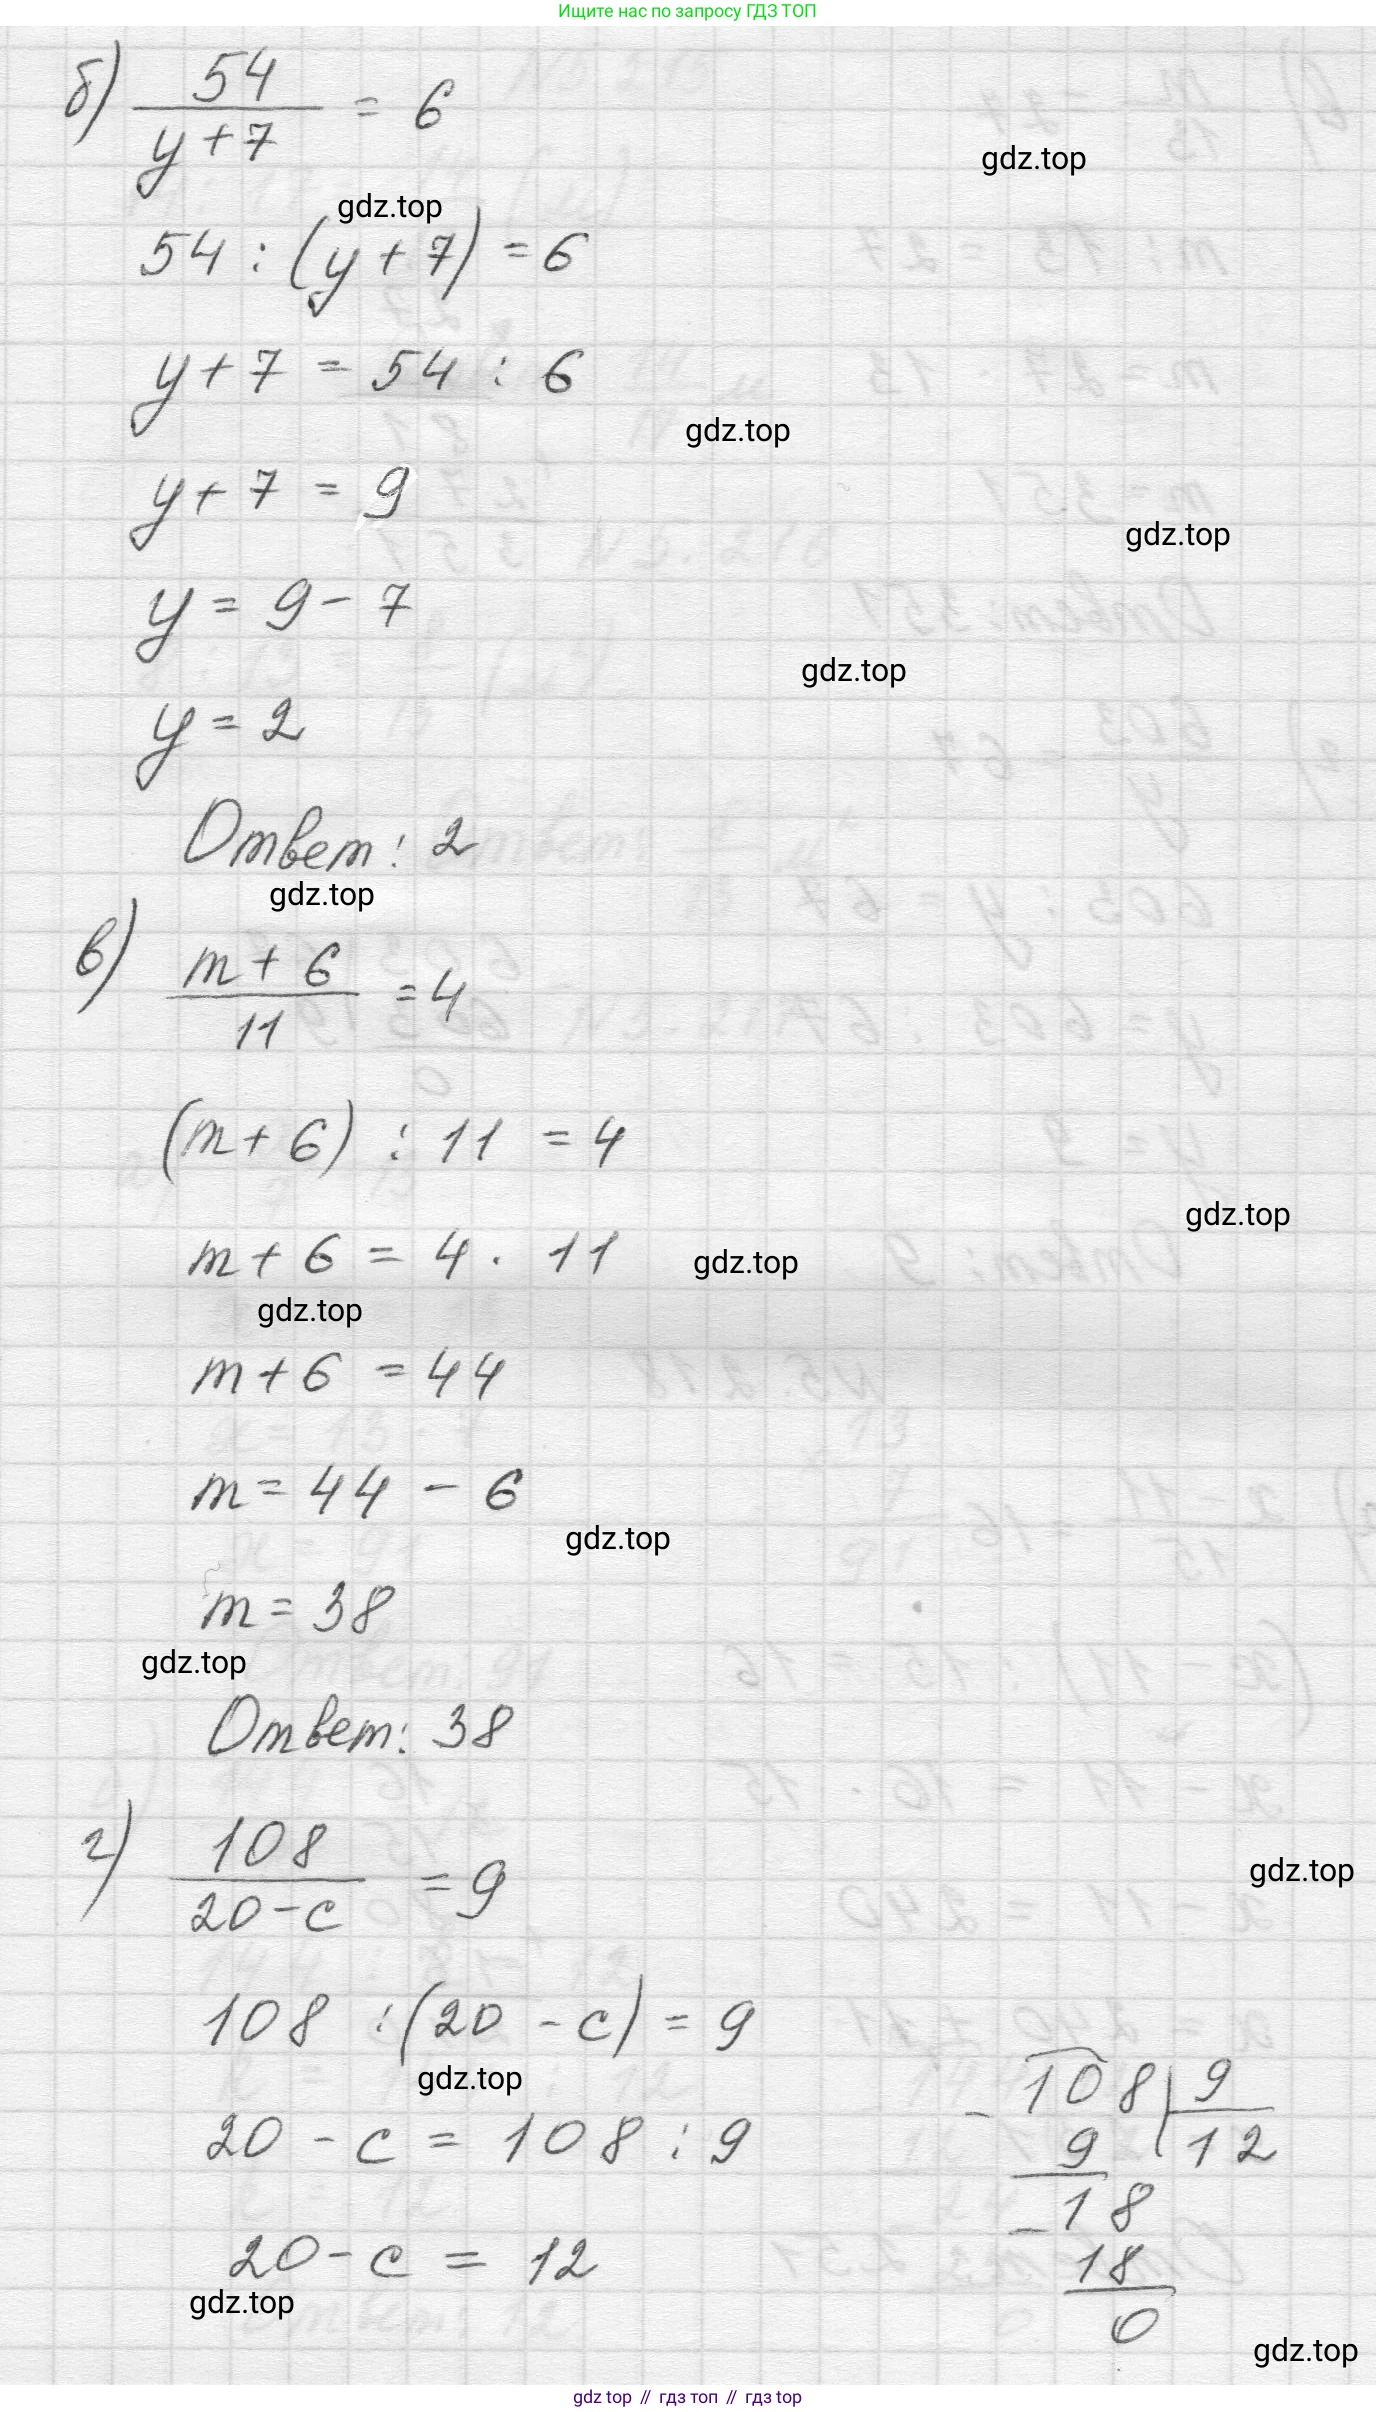 Ищите нас по запросу ГДЗ ТОП
б) 54 / (y + 7) = 6
gdz.top
gdz.top
54 : (y + 7) = 6
y + 7 = 54 : 6
gdz.top
y + 7 = 9
gdz.top
y = 9 - 7
gdz.top
y = 2
Ответ: 2
gdz.top
в) (m + 6) / 11 = 4
(m + 6) : 11 = 4
gdz.top
m + 6 = 4 · 11
gdz.top
gdz.top
m + 6 = 44
m = 44 - 6
gdz.top
m = 38
gdz.top
Ответ: 38
г) 108 / (20 - c) = 9
gdz.top
108 : (20 - c) = 9
gdz.top
20 - c = 108 : 9
20 - c = 12
gdz.top
- 108 | 9
9 | 12
- 18
18
0
gdz.top
gdz top // гдз топ // gdz top